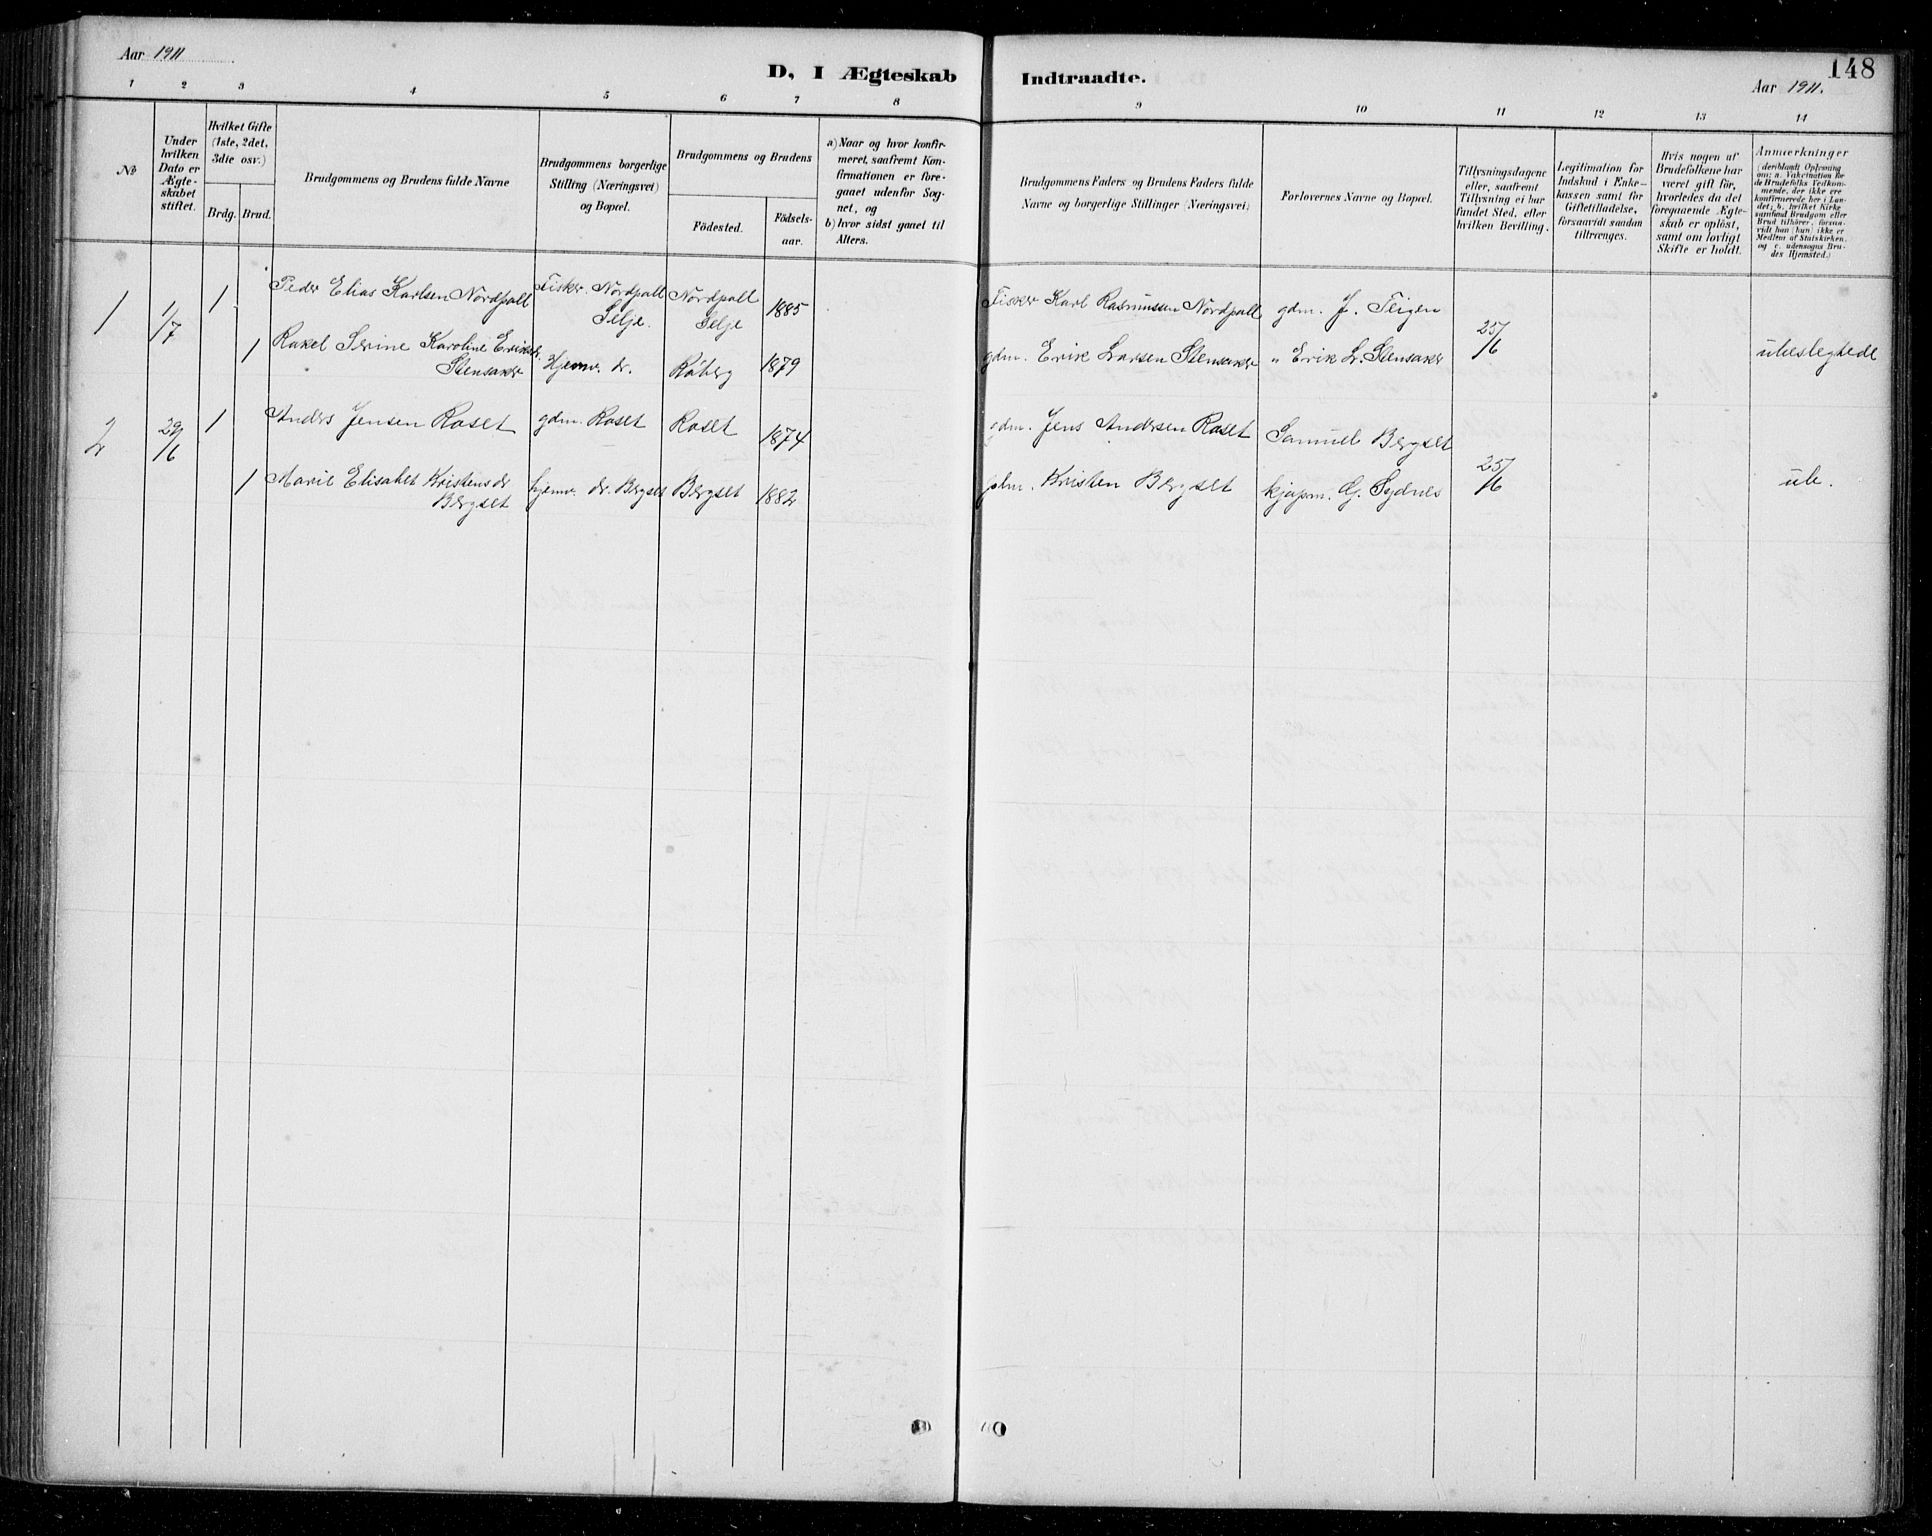 Aar 1911
D, I Ægteskab Indtraadte.
148
Aar 1911.
1 2 3 4 5 6 7 8 9 10 11 12 13 14
№
Under
hvilken
Dato er
Ægte-
skabet
stiftet.
Hvilket Gifte
(1ste, 2det,
3die osv.)
Brdg. Brud.
Brudgommens og Brudens fulde Navne
Brudgommens borgerlige
Stilling (Næringsvei)
og Bopæl.
Brudgommens og Brudens
Födested.
Födsels-
aar.
a) Naar og hvor konfir-
meret, saafremt Kon-
firmationen er fore-
gaaet udenfor Sog-
net, og
b) hvor sidst gaaet til
Alters.
Brudgommens Faders og Brudens Faders fulde
Navne og borgerlige Stillinger (Næringsvei)
Forlovernes Navne og Bopæl.
Tillysningsdagene
eller, saafremt
Tillysning ei har
fundet Sted, efter
hvilken Bevilling.
Legitimation for
Indskud i Enke-
kassen samt for
Giftetilladelse,
forsaavidt saadan
tiltrænges.
Hvis nogen af
Brudefolkene har
været gift för,
hvorledes da det
foregaaende Ægte-
skab er oplöst,
samt om lovligt
Skifte er holdt.
Anmærkninger
(deriblandt Oplysning
om: a. Vakcination for
de Brudefolks Vedkom-
mende, der ikke ere
konfirmerede her i Lan-
det; b. hvilket Kirke-
samfund Brudgom eller
Brud tilhörer, forsaa-
vidt han (hun) ikke er
Medlem af Statskirken,
og c. udensogns Bru-
des Hjemsted.)
1 1/7 1 Peder Elias Karlsen Nordpoll Fisker. Nordpoll Selje. Nordpoll Selje 1885 Fisker Karl Rasmussen Nordpoll gdm. J. Teigen 25/6
1 Rakel Serine Karoline Eriksdr. Stensaker Hjemv. dr. Raberg 1879 gdm. Erik Larsen Stensaker " Erik L. Stensaker ubeslegtede
2 29/6 1 Anders Jensen Roset gdm. Roset Roset 1874 gdm. Jens Andersen Roset Samuel Bergset 25/6
1 Marie Elisabet Kristensdr Bergset hjemv. dr. Bergset Bergset 1882 Kristen Bergset kjøpm. G. Sydnes ub.